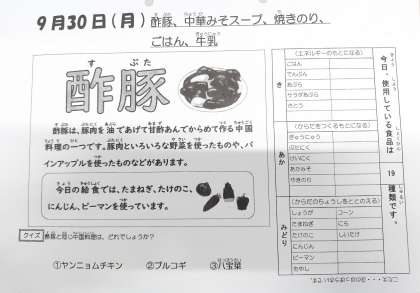 9月30日(月) 酢豚、中華みそスープ、焼きのり、
ごはん、牛乳
すぶた
酢豚
酢豚は、豚肉を油であげて甘酢あんでからめて作る中国
料理の一つです。豚肉といろいろな野菜を使ったものや、パ
インアップルを使ったものなどがあります。
今日の給食では、たまねぎ、たけのこ、
にんじん、ピーマンを使っています。
クイズ 酢豚と同じ中国料理は、どれでしょうか?
①ヤンニョムチキン ②プルコギ ③八宝菜
今日、使用している食品は
19
種類です。
き
(エネルギーのもとになる)
ごはん
でんぷん
あぶら
サラダあぶら
さとう
あか
(からだをつくるもとになる)
ぎゅうにゅう
ぶたにく
とりにく
あかみそ
やきのり
みどり
(からだのちょうしをととのえる)
しょうが コーン
たまねぎ にら
たけのこ しいたけ
にんじん
ピーマン
もやし